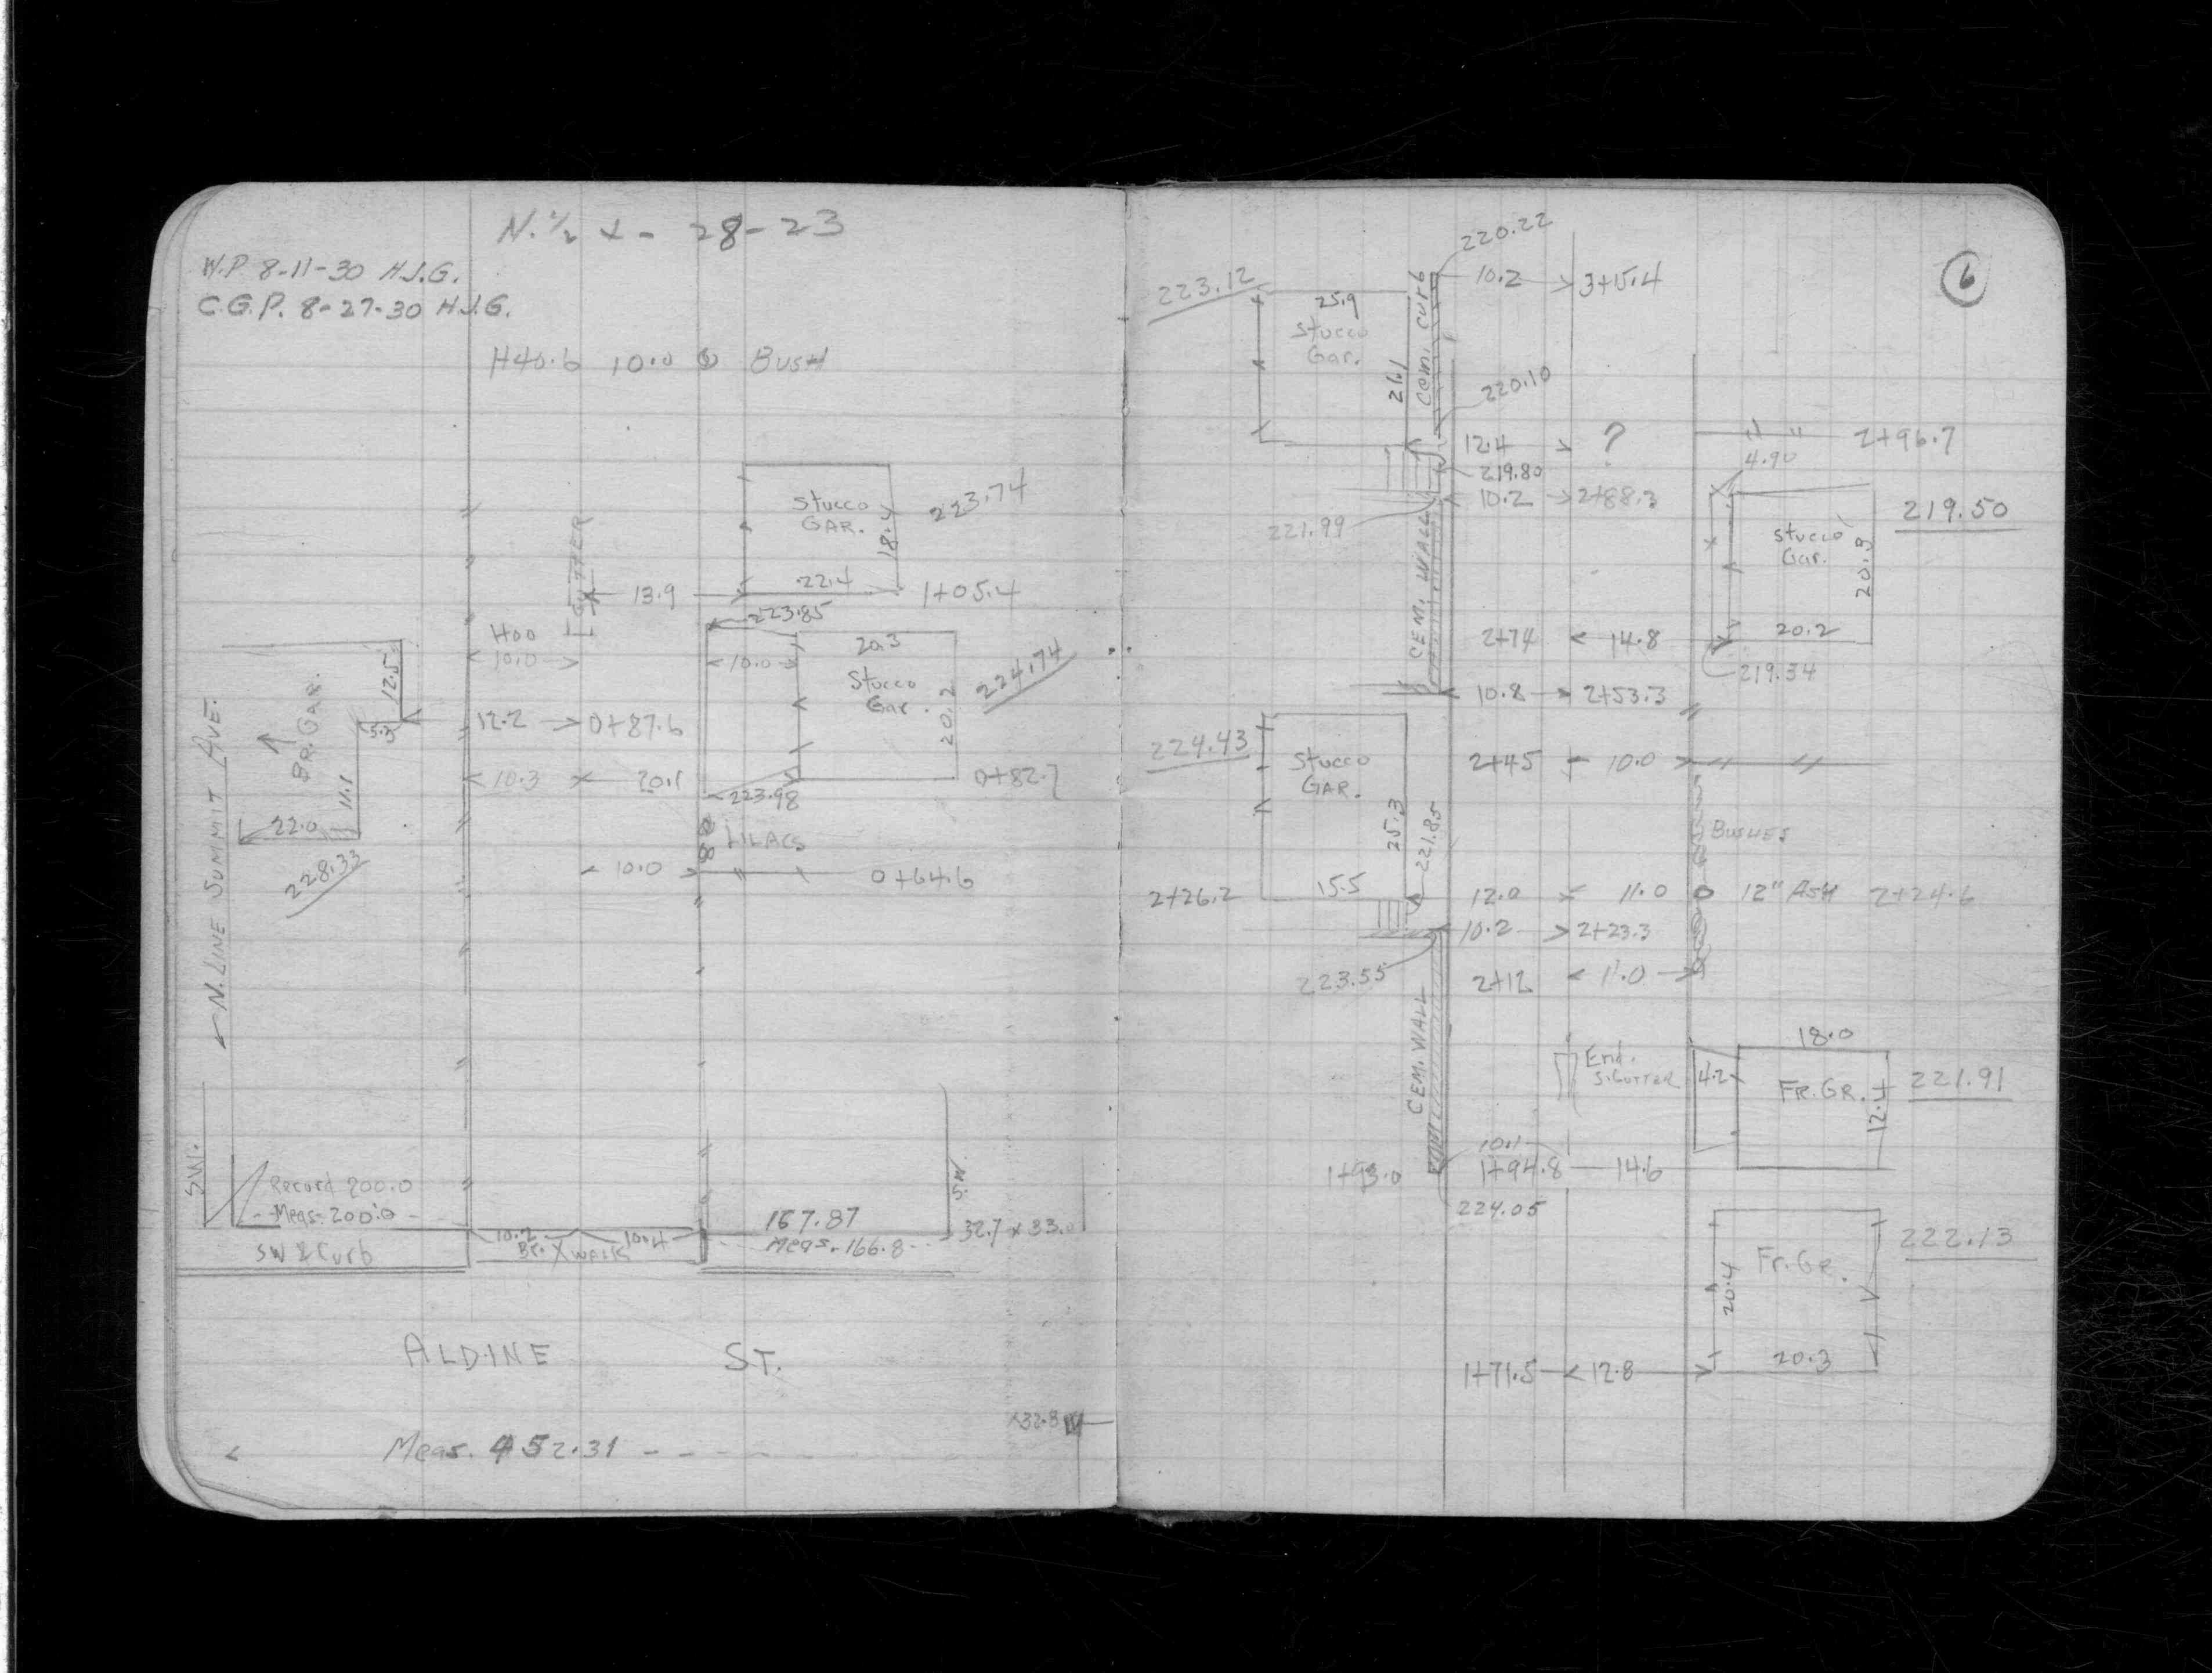 N. 1/2 X - 28-23
W.P. 8-11-30 H.J.G.
C.G.P. 8-27-30 H.J.G.
1+40.6 10.0 BUSH
Stucco
GAR.
18.4
223.74
22.4
GUTTER
13.9
1+05.4
223.85
1+00
10.0
10.0
20.3
Stucco
Gar.
20.2
224.74
12.5
BR. GAR.
5.3
12.2 0+87.6
11.1
10.3 20.1
0+82.7
223.98
22.0
228.33
LILACS
10.0
0+64.6
N. LINE SUMMIT AVE.
S.W.
Record 200.0
Meas. 200.0
S.W.
167.87
32.7 x 33.0
10.2 10.4
Meas. 166.8
SW & Curb
Br. X WALK
ALDINE ST.
X32.8
Meas. 452.31
6
220.22
223.12
10.2 3+15.4
25.9
Stucco
Gar.
21.1
Cem. Curb
220.10
12.4 ?
2+96.7
4.90
219.80
10.2 2+88.3
221.99
219.50
Stucco
Gar.
20.9
CEM. WALL
2+74 14.8
20.2
219.34
10.8 2+53.3
224.43
Stucco
GAR.
25.3
221.85
2+45 10.0
BUSHES
2+26.2
15.5
12.0 11.0 12" ASH 2+24.6
10.2 2+23.3
223.55
2+12 11.0
CEM. WALL
End.
S. GUTTER
18.0
4.2
FR. GR.
12.4
221.91
10.1
1+93.0
1+94.8 14.6
224.05
222.13
Fr. Gr.
20.4
20.3
1+71.5 12.8